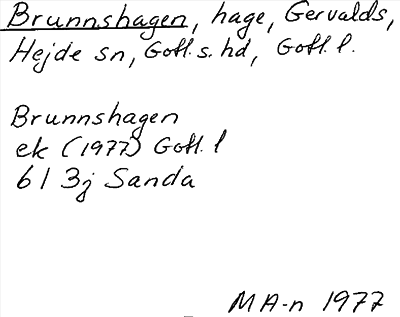 Brunnshagen, hage, Gervalds,
Hejde sn, Gotl. s. hd, Gotl. l.
Brunnshagen
ek (1977) Gotl. l
6 I 3j Sanda
MA-n 1977